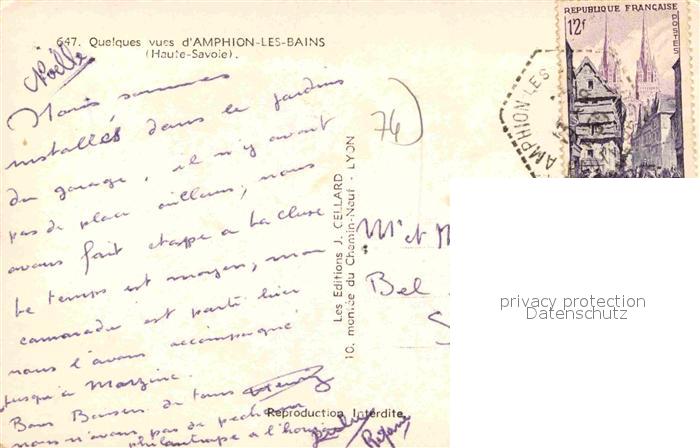 647. Quelques vues d'AMPHION-LES-BAINS
(Haute-Savoie).
Noëlle
Nous sommes
installés dans le jardin
du garage, il n'y avait
pas de place ailleurs, nous
avons fait étape à La Cluse
Le temps est moyen, mon
camarade est parti hier
nous l'avons accompagné
jusqu'à Morzine.
Bons Baisers de tous
nous n'avons pas de
philantrope à l'
74
Les Editions J. CELLARD
10, montée du Chemin-Neuf - LYON
Reproduction Interdite
REPUBLIQUE FRANÇAISE
12f
POSTES
AMPHION-LES
Mr et M
Bel
S
privacy protection
Datenschutz